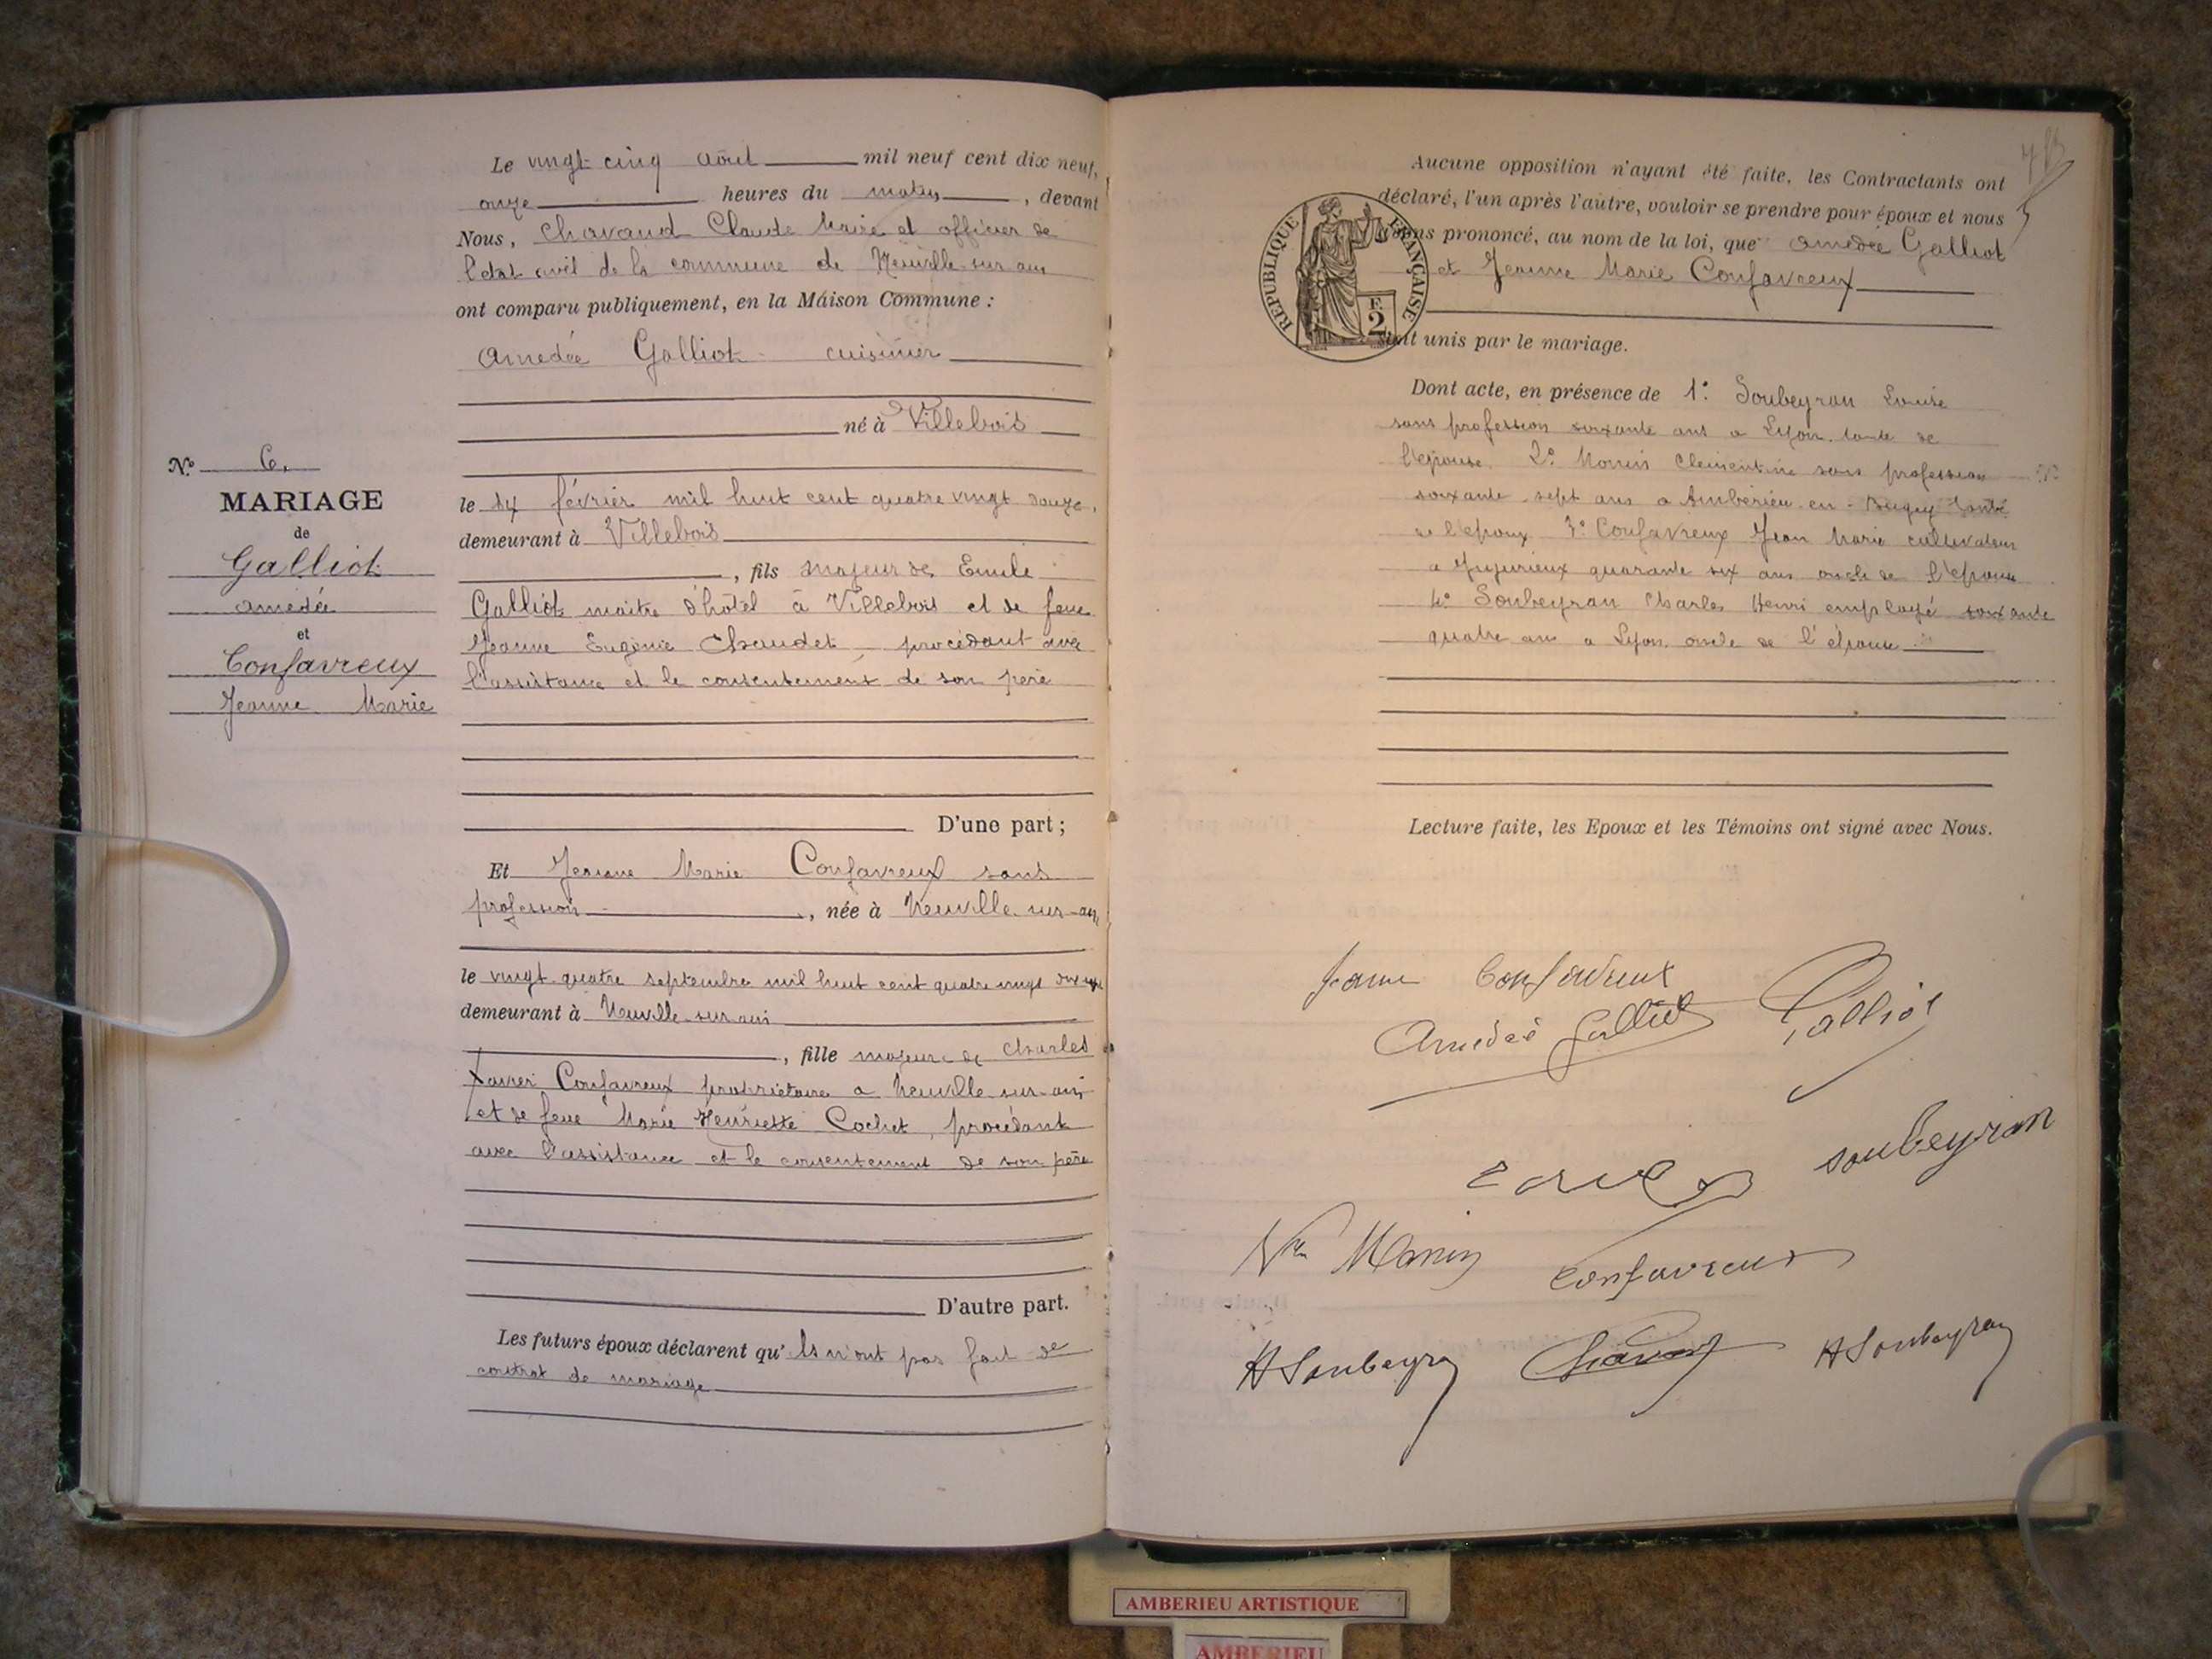 Le vingt cinq août mil neuf cent dix neuf,
onze heures du matin, devant
Nous, Chavand Claude Maire et officier de
l'état civil de la commune de Neuville-sur-ain
ont comparu publiquement, en la Maison Commune :
Amedée Galliot cuisinier
né à Villebois
N° 6.
MARIAGE
de
Galliot
Amédée
et
Confavreux
Jeanne Marie
le six février mil huit cent quatre vingt douze,
demeurant à Villebois
, fils majeur de Emile
Galliot maitre d'hôtel à Villebois et de feue
Jeanne Eugénie Chaudet, procédant avec
l'assistance et le consentement de son père
D'une part ;
Et Jeanne Marie Confavreux sans
profession, née à Neuville-sur-ain
le vingt quatre septembre mil huit cent quatre vingt
demeurant à Neuville-sur-ain
, fille majeure de Charles
Xavier Confavreux propriétaire a Neuville-sur-ain
et de feue Marie Henriette Cochet, procédant
avec l'assistance et le consentement de son père
D'autre part.
Les futurs époux déclarent qu'ils n'ont pas fait de
contrat de mariage
Aucune opposition n'ayant été faite, les Contractants ont
déclaré, l'un après l'autre, vouloir se prendre pour époux et nous
avons prononcé, au nom de la loi, que Amedée Galliot
et Jeanne Marie Confavreux
sont unis par le mariage.
REPUBLIQUE FRANÇAISE
F.
2
Dont acte, en présence de 1° Soubeyran Louise
sans profession soixante ans a Lyon, tante de
l'épouse. 2° Clementine sans profession
soixante sept ans a Ambérieu-en-Bugey tante
de l'époux 3° Confavreux Jean Marie cultivateur
a Jujurieux quarante six ans oncle de l'épouse
4° Soubeyran Charles Henri employé soixante
quatre ans a Lyon, oncle de l'épouse
Lecture faite, les Epoux et les Témoins ont signé avec Nous.
Jeanne Confavreux
Amédée Galliot Galliot
soubeyran
Confavreux
HSoubeyran Chavand HSoubeyran
AMBERIEU ARTISTIQUE
AMBERIEU